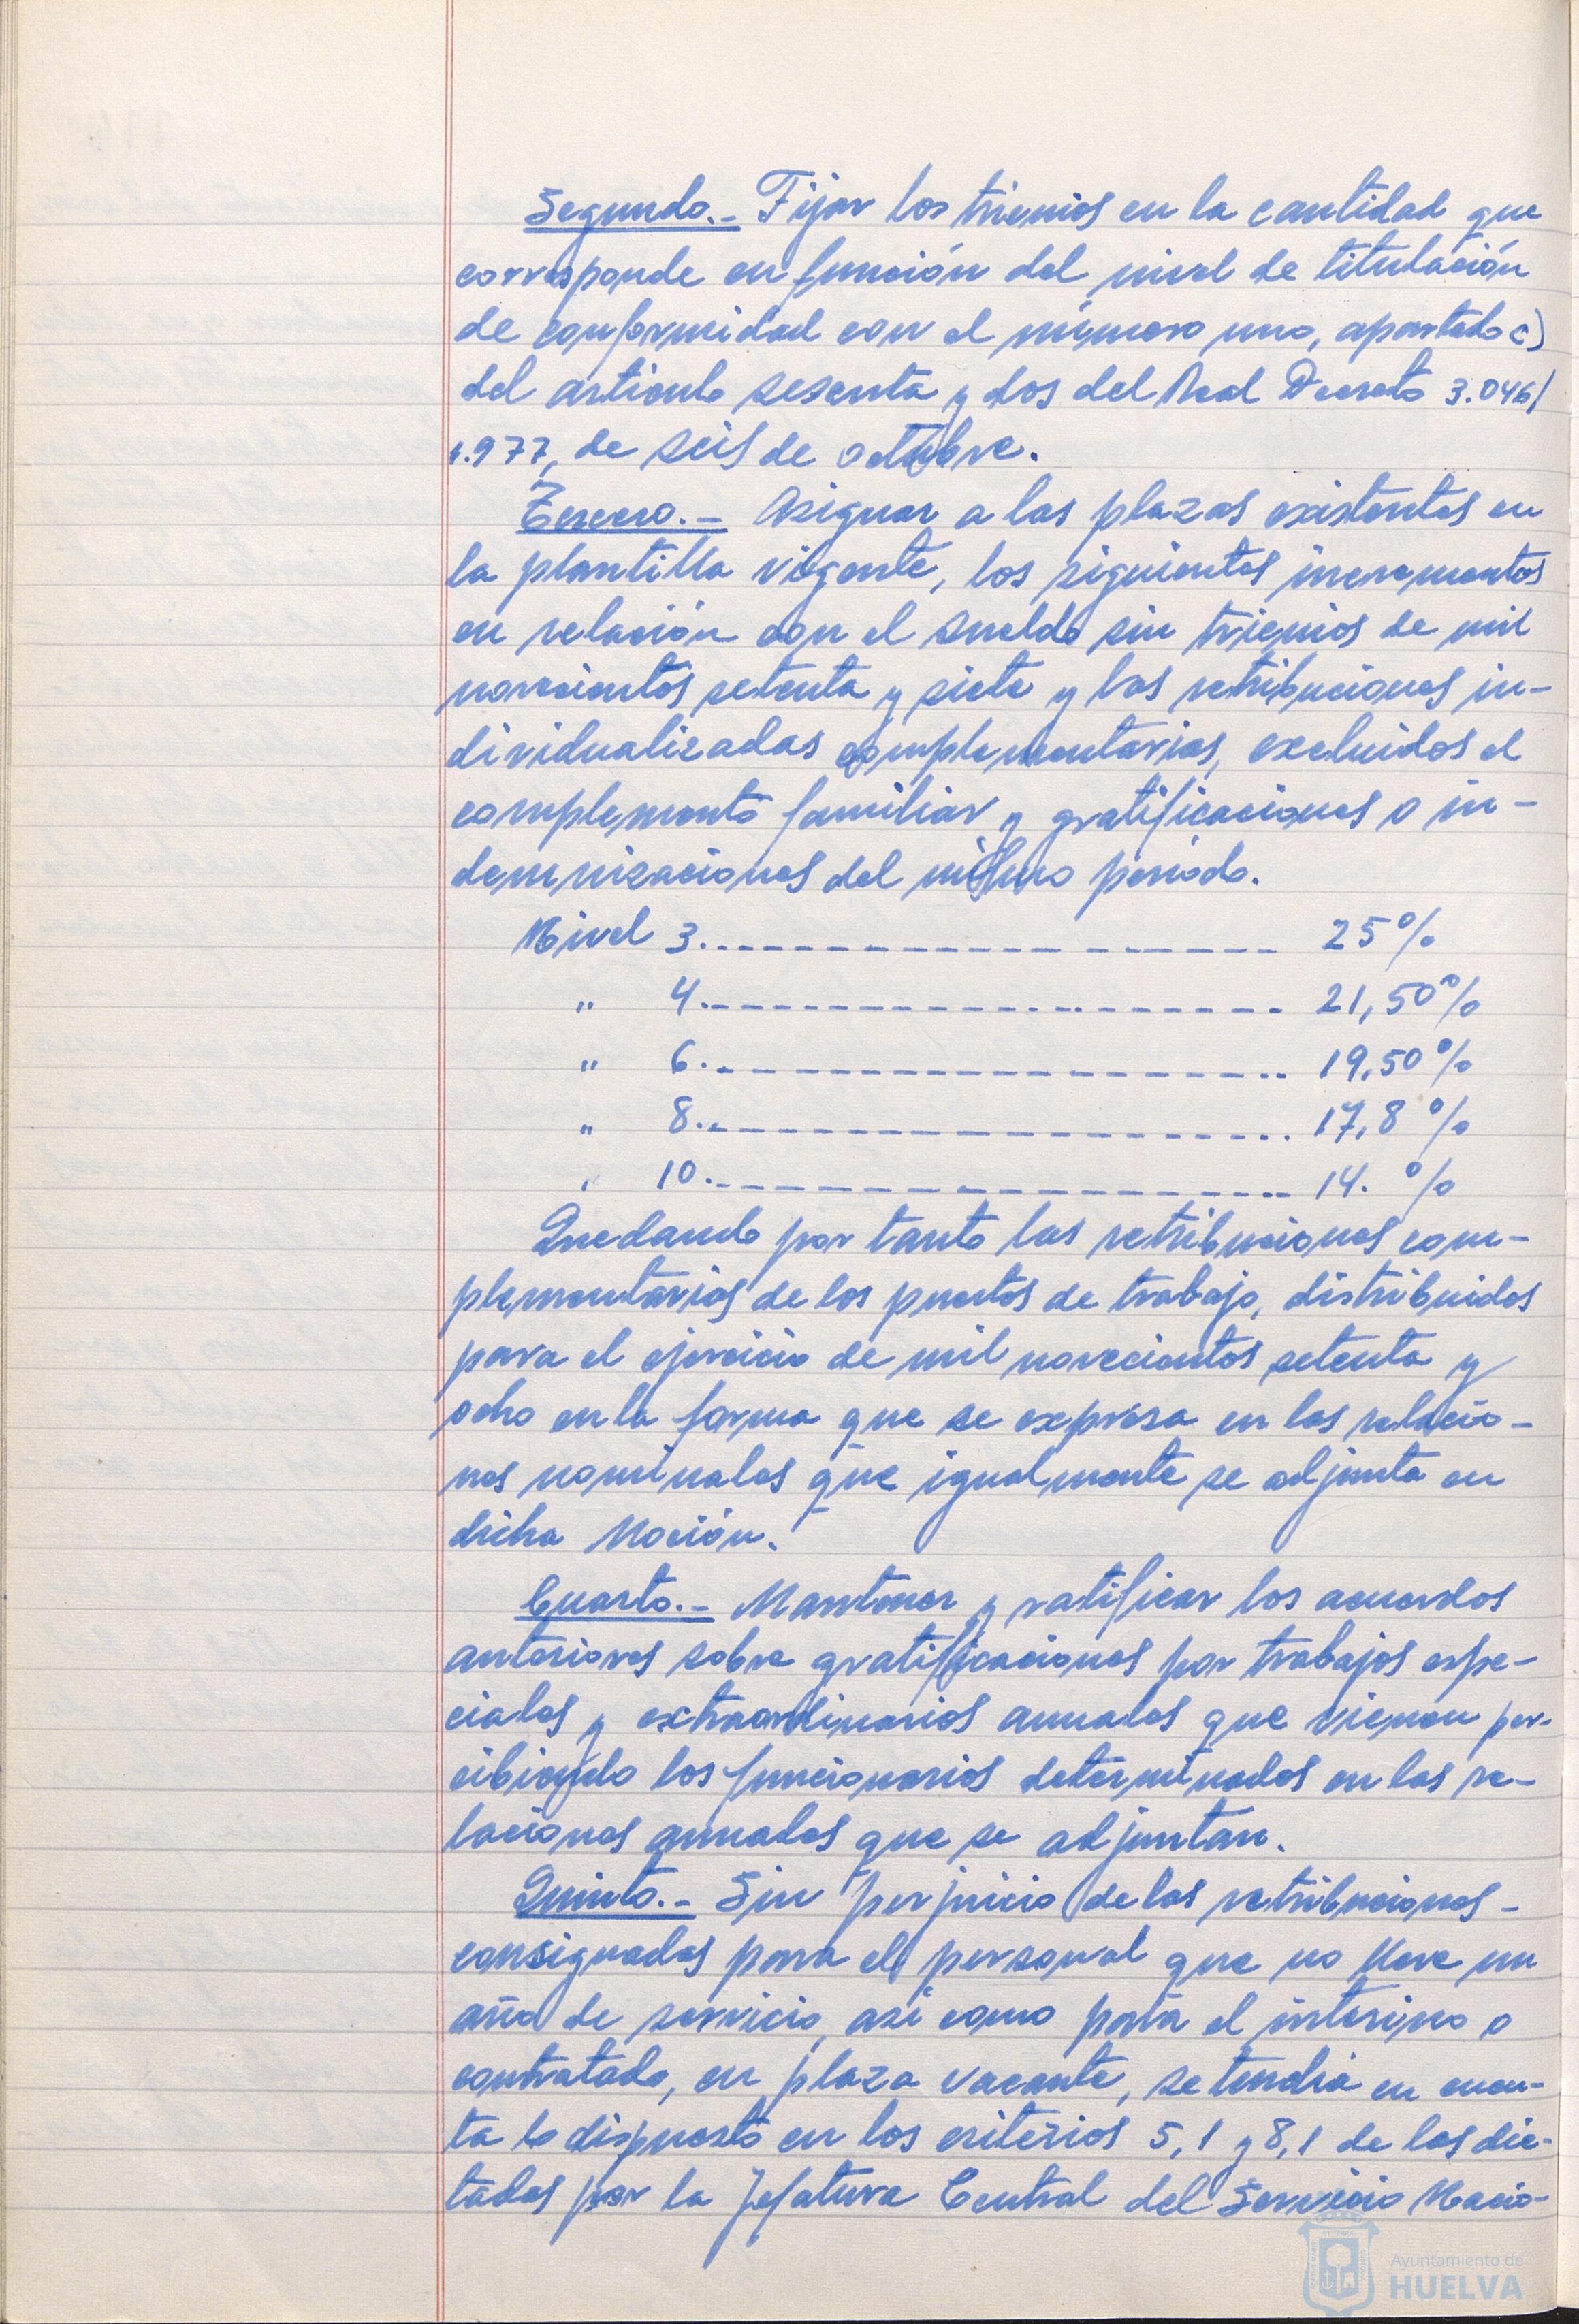 Segundo.- Fijar los trienios en la cantidad que
corresponde en función del nivel de titulación
de conformidad con el número uno, apartado c)
del artículo sesenta y dos del Real Decreto 3.046/
1.977, de seis de octubre.
Tercero.- Asignar a las plazas existentes en
la plantilla vigente, los siguientes incrementos
en relación con el sueldo sin trienios de mil
novecientos setenta y siete y las retribuciones in-
dividualizadas complementarias, excluidos el
complemento familiar y gratificaciones o in-
demnizaciones del mismo periodo.
Nivel 3. 25%
" 4. 21,50%
" 6. 19,50%
" 8. 17,8 %
" 10. 14. %
Quedando por tanto las retribuciones com-
plementarias de los puestos de trabajo, distribuidos
para el ejercicio de mil novecientos setenta y
ocho en la forma que se expresa en las relacio-
nes nominales que igualmente se adjunta en
dicha Moción.
Cuarto.- Mantener y ratificar los acuerdos
anteriores sobre gratificaciones por trabajos espe-
ciales y extraordinarios anuales que vienen per-
cibiendo los funcionarios determinados en las re-
laciones anuales que se adjuntan.
Quinto.- Sin perjuicio de las retribuciones-
consignadas para el personal que no lleve un
año de servicio, así como para el interino o
contratado, en plaza vacante, se tendrá en cuen-
ta lo dispuesto en los criterios 5,1 y 8,1 de los dic-
tados por la Jefatura Central del Servicio Nacio-
Ayuntamiento de
HUELVA